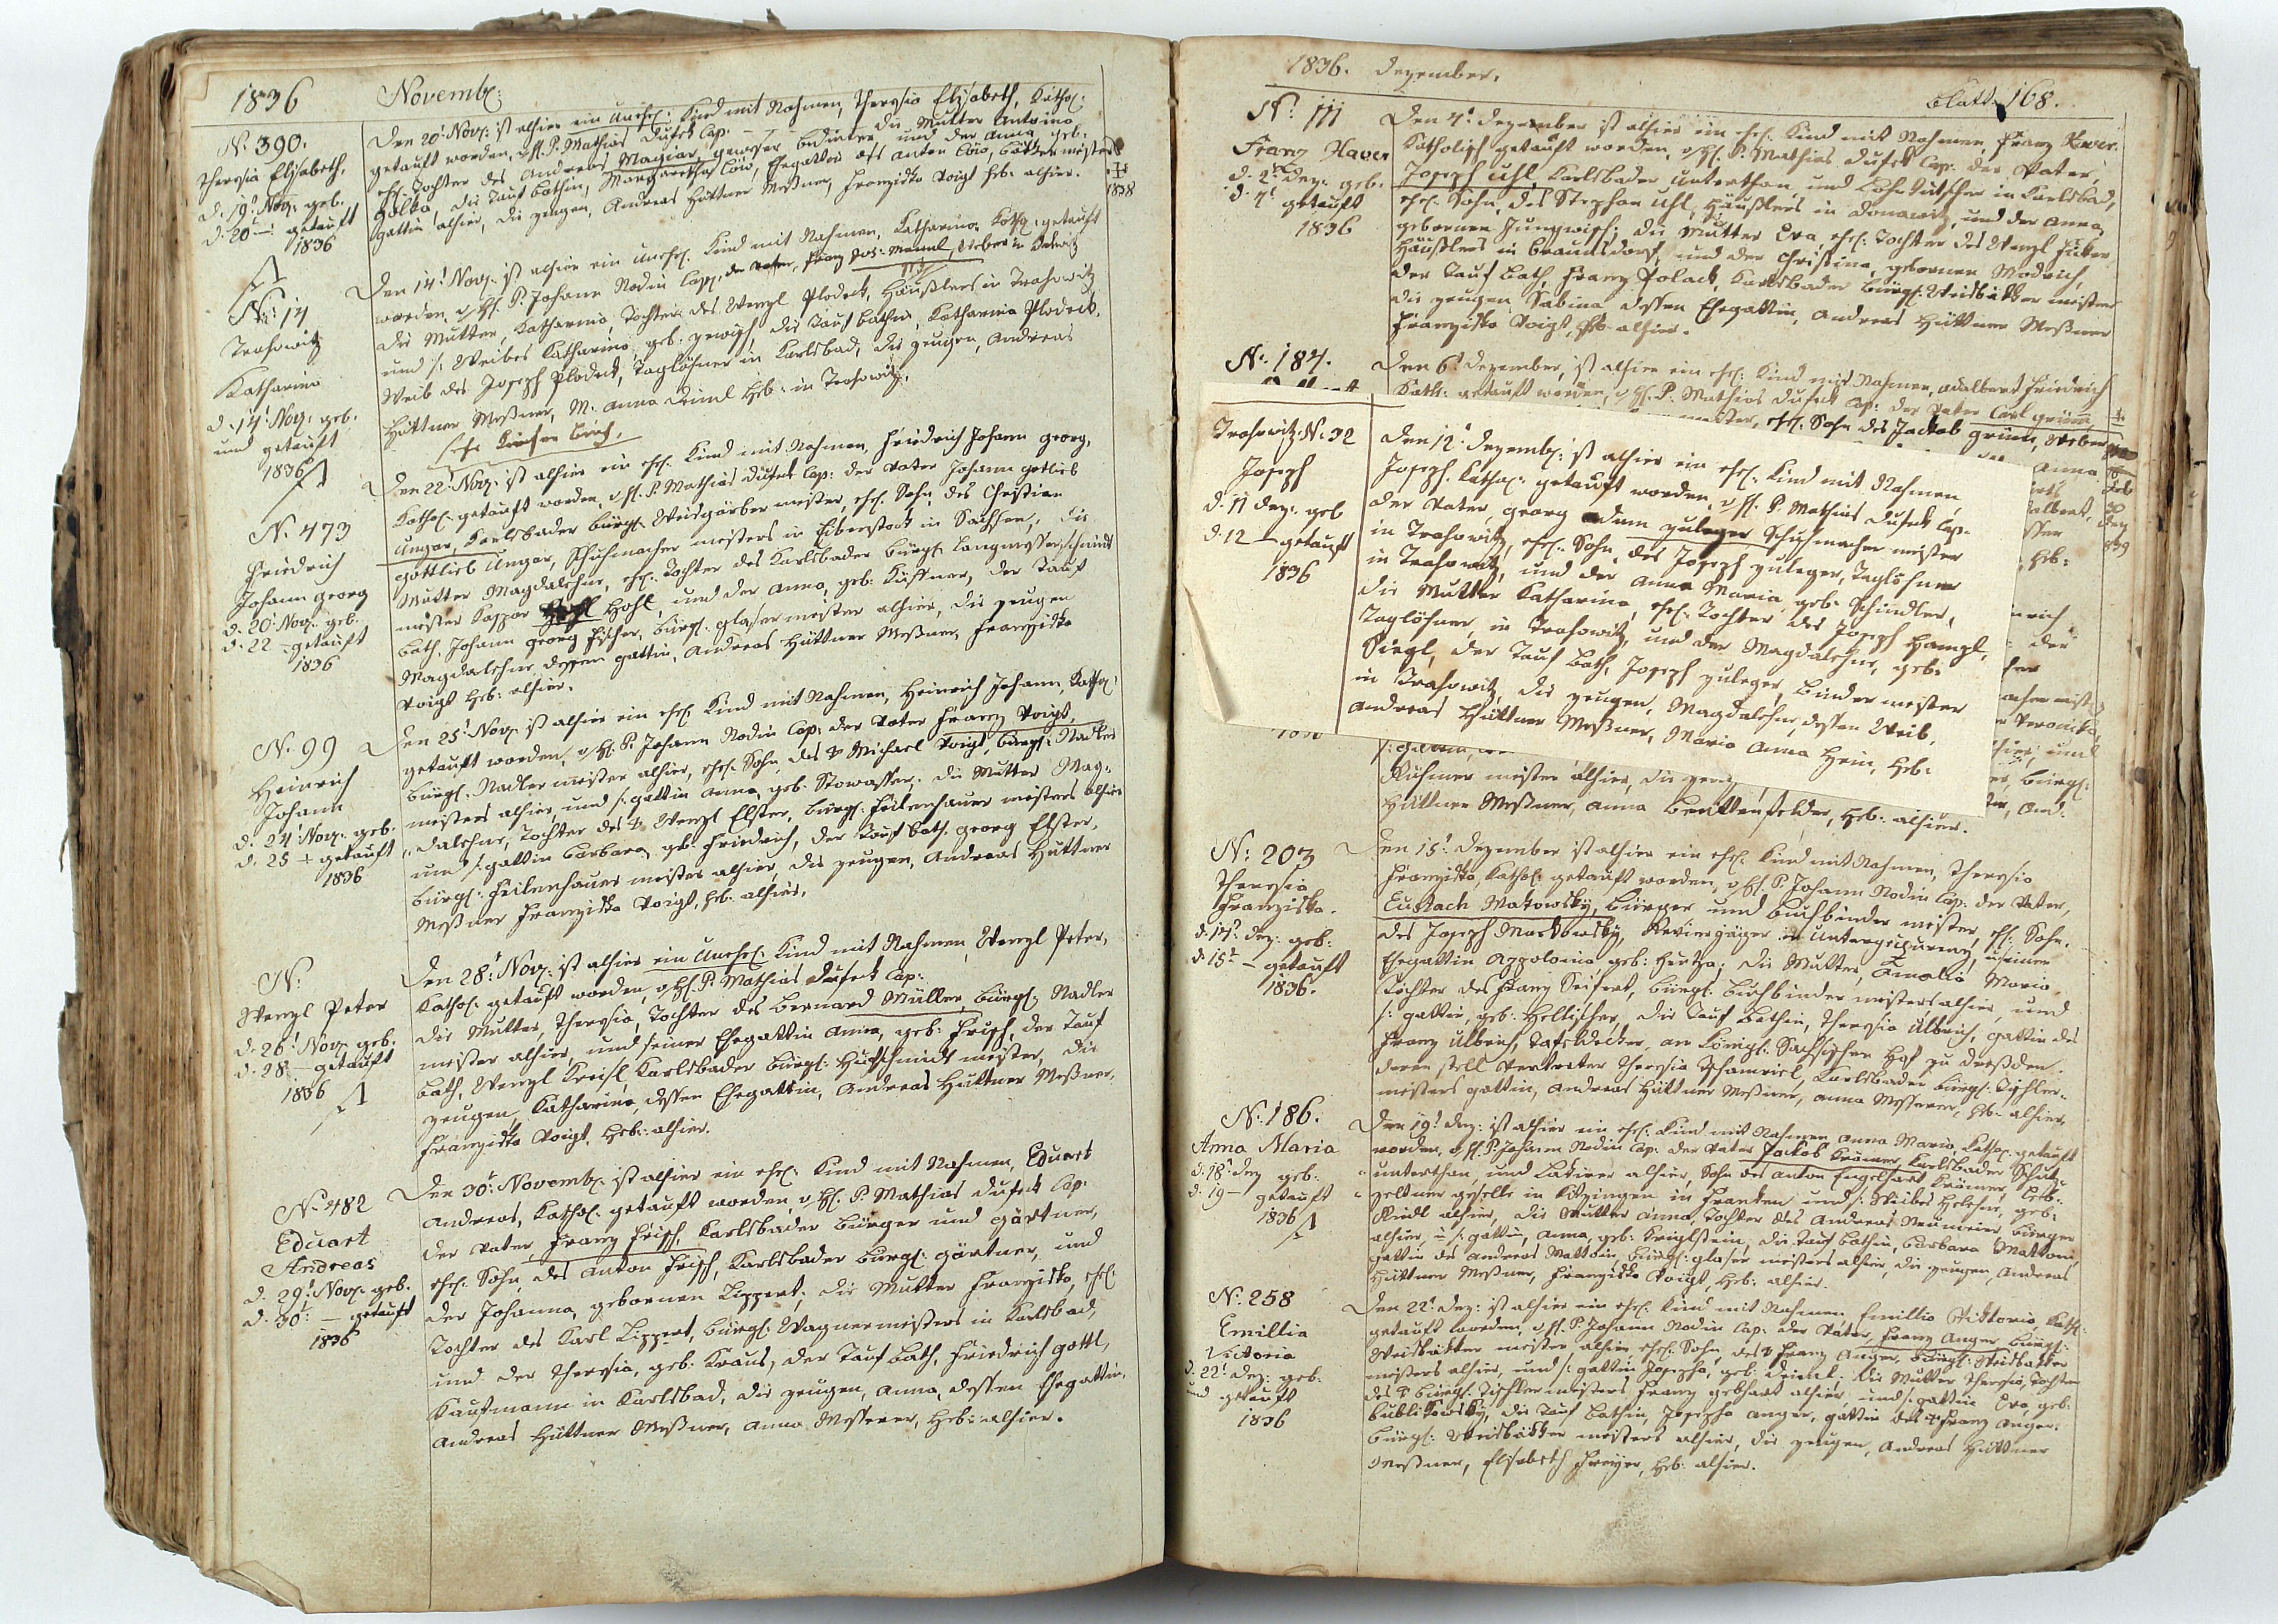 1836 Novemb:
N: 390.
Theresia Elisabeth.
d. 19t Nov: geb.
d. 20 — getauft
1836
Den 20t Nov: ist alhier ein Unehel: Kind mit Nahmen, Theresia Elisabeth, Kathol:
getauft worden, v H. P. Mathias Duschek Cap. — die Mutter Antonia
ehel. Tochter des Andreas Magiar, gewesener Bedienter und der Anna geb.
die Tauf Bathin, Margaretha Löw, Ehegattin des Anton Löw,
gattin alhier, die zeugen, Andreas Hüttner Meßner, Franziska Voigt Heb: alhier.
1838
N: 14
Trahowitz
Katharina
d. 14t Nov: geb.
und getauft
1836
Den 14t Nov: ist alhier ein Unehel. Kind mit Nahmen, Katharina, Kathol: getauft
worden, v H. P. Johann Nodin Cap. der Vater, Franz Jos: Mannl, Weber in
die Mutter, Katharina, Tochter des Wenzl Plodeck, Häußlers in Trahowitz
und s: Weibes Katharina, geb. die Tauf bathin, Katharina Plodeck,
Weib des Joseph Plodeck, Taglöhner in Carlsbad, die zeugen, Andreas
Hüttner Meßner, M: Anna Deiml Heb: in Trahowitz.
N. 473
Friedrich
Johann Georg
d. 20t Nov: geb.
d. 22 — getauft
1836
Den 22t Nov: ist alhier ein ehel. Kind mit Nahmen, Friedrich Johann Georg,
Kathol: getauft worden, v H. P. Mathias Duschek Cap: der Vater Johann Gotlieb
Ungar, Karlsbader bürgl: Weisgärber meister, ehel. Sohn, des Christian
Gottlieb Ungar, Schuhmacher meisters in Eibenstock in Sachsen, die
Mutter Magdalehne, ehel: Tochter des Karlsbader Bürgl: Langmesserschmidt
meister Kaspar Hohl, und der Anna, geb: der Tauf
bath, Johann Georg Fischer, bürgl. Glaser meister alhier, die zeugen
Magdalehne dessen gattin, Andreas Hüttner Meßner, Franziska
Voigt Heb: alhier.
N: 99
Heinrich
Johann
d. 24t Nov: geb.
d. 25 + getauft
1836
Den 25t Nov: ist alhier ein ehel: Kind mit Nahmen, Heinrich Johann, Kathol:
getauft worden, v H: P. Johann Nodin Cap: der Vater Franz Voigt,
bürgl: Nadler meister alhier, ehel. Sohn, des † Michael Voigt, bürgl: Nadler
meisters alhier, und s: gattin Anna, geb: Stowasser, die Mutter Mag-
dalehne, Tochter des † Wenzl Elster, bürgl: Feilenhauer meisters alhier
und s: gattin Barbara, geb. Friedrich, der Tauf bath, Georg Elster,
bürgl: Feilenhauer meister alhier, die zeugen, Andreas Hüttner
Meßner Franziska Voigt, Heb: alhier.
N:
Wenzl Peter
d. 26t Nov: geb.
d. 28 — getauft
1836
Den 28t Nov: ist alhier ein Unehel: Kind mit Nahmen, Wenzl Peter,
Kathol: getauft worden, v H. P. Mathias Duschek Cap:
die Mutter, Theresia, Tochter des Bernard Müller, bürgl: Nadler
meister alhier, und seiner Ehegattin Anna, geb: Frisch, der Tauf
bath, Wenzl Kreisl, Karlsbader bürgl: Hufschmidt meister, die
zeugen, Katharina, dessen Ehegattin, Andreas Hüttner Meßner,
Franziska Voigt, Heb: alhier.
N: 482
Eduart
Andreas
d. 29t Nov: geb.
d. 30t — getauft
1836
Den 30t Novemb: ist alhier ein ehel: Kind mit Nahmen, Eduart
Andreas, Kathol: getauft worden, v H: P. Mathias Duschek Cap:
der Vater, Franz Frisch, Karlsbader Bürger und gärtner,
ehel. Sohn, des Anton Frisch, Karlsbader bürgl: gärtner, und
der Johanna, gebornen Lippert, die Mutter Franziska, ehel:
Tochter des Karl Lippert, bürgl: Wagnermeisters in Karlsbad,
und der Theresia, geb. Kraus, der Tauf bath, Friedrich Gottl,
Kaufmann in Karlsbad, die zeugen, Anna, dessen Ehegattin,
Andreas Hüttner Meßner, Anna Messerer, Heb: alhier.
1836. Dezember.
Blatt. 168.
N: 111
Franz Xaver
d. 2t Dez: geb.
d. 4t getauft
1836
Den 4t Dezember ist alhier ein ehel. Kind mit Nahmen, Franz Xaver.
Katholisch getauft worden, v H: P. Mathias Duschek Cap: der Vater,
Joseph Uhl, Karlsbader Unterthan und Lohn Kutscher in Carlsbad,
ehel. Sohn, des Stephan Uhl, Häußlers in Donawitz, und der Anna,
gebornen die Mutter Eva, ehel: Tochter des Wenzl
Häußlers in und der Christina, gebornen Modrich,
der Tauf bath, Franz Polack, Karlsbader bürgl: Weisbäcker meister
die zeugen Sabina dessen Ehegattin, Andreas Hüttner Meßner
Franziska Voigt, Heb: alhier.
N: 184.
Den 6t Dezember, ist alhier ein ehel: Kind mit Nahmen, Adalbert Friedrich
Kath: getauft worden, v H. P. Mathias Duschek Cap: der Vater Carl Grimm
meister, ehel. Sohn des Jackob Grimm, Weber
Trahowitz N: 32
Joseph
d. 11 Dez: geb
d. 12 — getauft
1836
Den 12t Dezemb: ist alhier ein ehel: Kind mit Nahmen,
Joseph. Kathol: getauft worden, v H. P. Mathias Duschek Cap.
der Vater, Georg Adam Zuleger Schuhmacher meister
in Trahowitz, ehel. Sohn, des Joseph Zuleger, Taglöhner
in Trahowitz, und der Anna Maria, geb: Schindler,
die Mutter Katharina, ehel: Tochter des Joseph Hampl,
Taglöhner, in Trahowitz, und der Magdalehne, geb:
Siegl, der Tauf bath, Joseph Zuleger, Binder meister
in Trahowitz, die zeugen, Magdalehne, dessen Weib,
Andreas Hüttner Meßner, Maria Anna Hein, Heb:
meister alhier, die zeug
Hüttner Meßner, Anna Breittenfelder, Heb: alhier.
N: 203
Theresia
Franziska.
d. 14t Dez: geb:
d. 15t — getauft
1836.
Den 15t Dezember ist alhier ein ehel: Kind mit Nahmen, Theresia
Franziska, Kathol: getauft worden, v H: P. Johann Nodin Cap: der Vater,
Eustach Makowsky, Bürger und Buchbinder meister, ehl: Sohn,
des Joseph Markowsky, Revierjäger in und seiner
Ehegattin Appolonia geb: die Mutter, Amalia Maria
Tochter des Franz Seifert, bürgl: Buchbinder meisters alhier, und
s: gattin, geb: die Tauf bathin, Theresia Ulbrich, gattin des
Franz Ulbrich, Tafeldecker, am Königl: Sächsischen Hof zu Dreßden.
deren stell Vertreter Theresia Karlsbader bürgl: Tischler-
meisters gattin, Andreas Hüttner Meßner, Anna Messerer, Heb: alhier,
N: 186.
Anna Maria
d. 18t Dez geb.
d. 19 — getauft
1836
Den 19t Dez: ist alhier ein ehel. Kind mit Nahmen Anna Maria, Kathol: getauft
worden, v H. P. Johann Nodin Cap: der Vater Jackob Krämer, Karlsbader Schutz-
unterthan, und Lakirer alhier, Sohn des Anton Engelhart Krämer,
geselle in Kitzingen in Franken und s: Weibes Helehne, geb:
Riedl alhier, die Mutter Anna, Tochter des Andreas Neumeier, bürger
alhier, u s: gattin, Anna, geb: die Tauf bathin, Barbara Mattoni,
gattin des Andreas Mattoni, bürgl: glaser meisters alhier, die zeugen, Andreas
Hüttner Meßner, Franziska Voigt, Heb: alhier.
N: 258
Emillia
Victoria
d. 22t Dez: geb.
und getauft
1836
Den 22t Dez: ist alhier ein ehel: Kind mit Nahmen, Emillia Viktoria, Kathl:
getauft worden, v H. P. Johann Nodin Cap: der Vater, Franz Anger, bürgl:
Weisbäcker meister alhier ehel: Sohn, des † Franz Anger, bürgl: Weisbäcker
meisters alhier, und s: gattin Josepha, geb: Deiml. die Mutter Theresia, Tochter
des † bürgl: Tischlermeisters Franz Gebhart alhier, und s: gattin Eva, geb:
die Tauf bathin, Josepha Anger, gattin des † Franz Anger.
bürgl: Weisbäcker meisters alhier, die zeugen, Andreas Hüttner
Meßner, Elisabeth Heb: alhier.